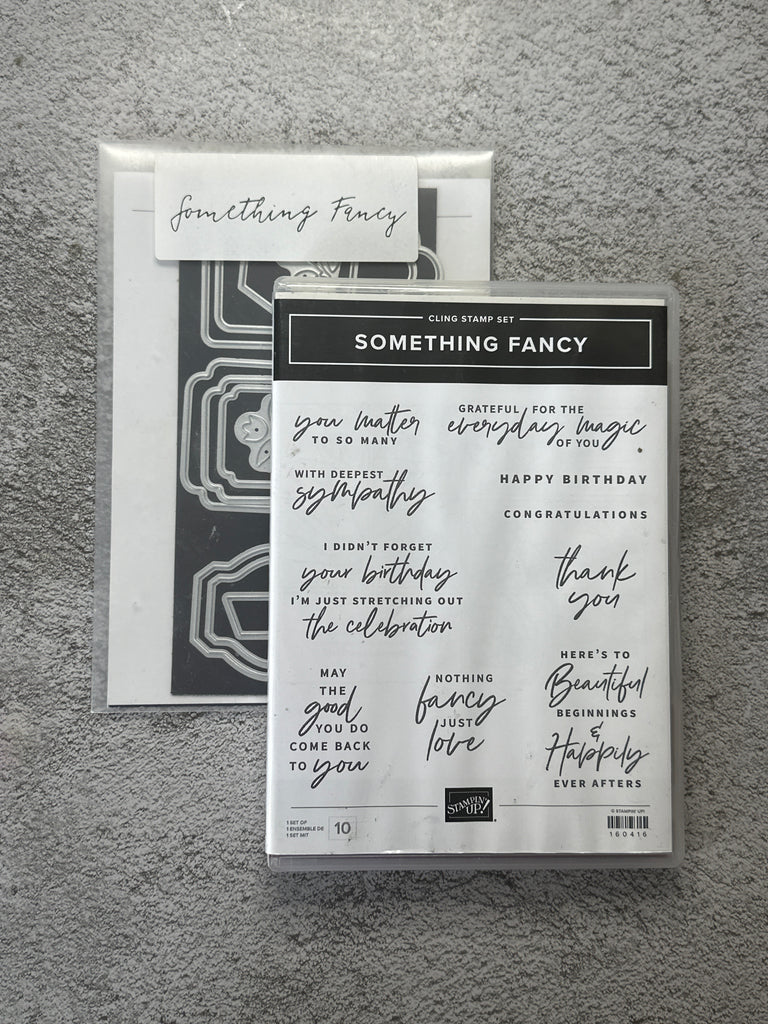 Something Fancy
CLING STAMP SET
SOMETHING FANCY
you matter
TO SO MANY
GRATEFUL FOR THE
everyday magic
OF YOU
WITH DEEPEST
sympathy
HAPPY BIRTHDAY
CONGRATULATIONS
I DIDN'T FORGET
your birthday
I'M JUST STRETCHING OUT
the celebration
thank
you
MAY
THE
good
YOU DO
COME BACK
TO you
NOTHING
fancy
JUST
love
HERE'S TO
Beautiful
BEGINNINGS
&
Happily
EVER AFTERS
1 SET OF
1 ENSEMBLE DE
1 SET MIT
10
STAMPIN'
UP!
© STAMPIN' UP!
160416